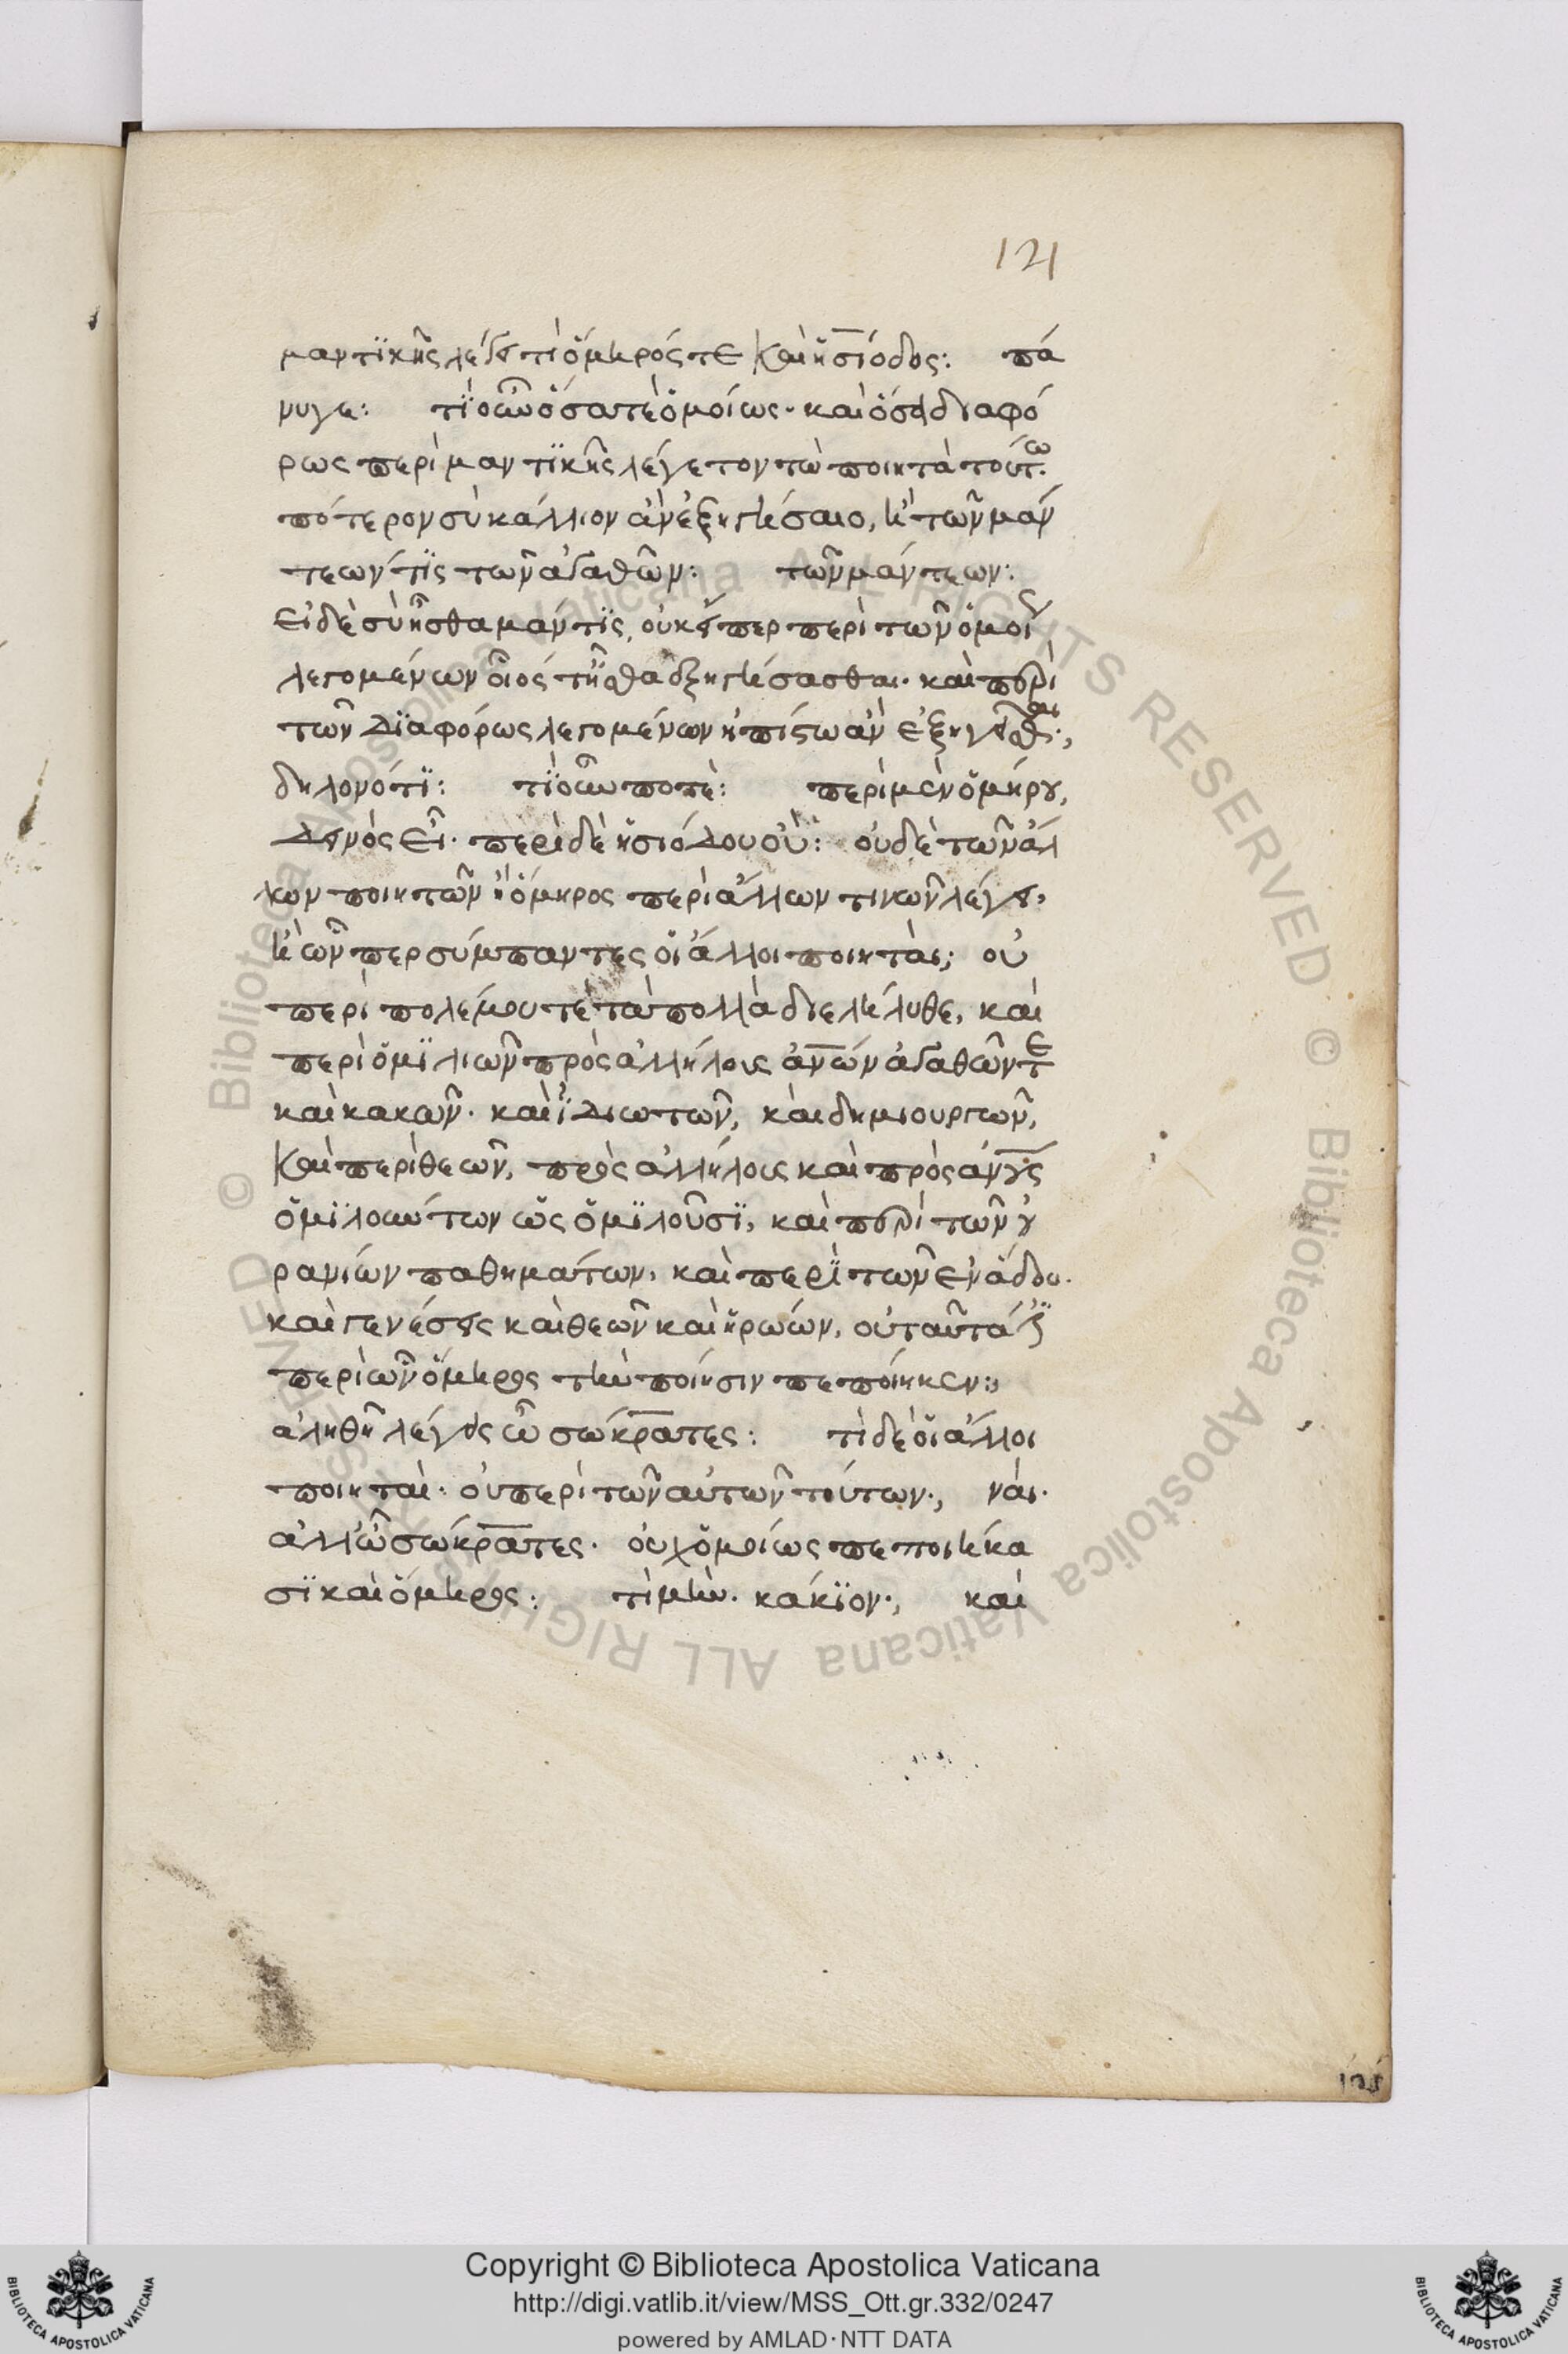 121
μαντϊκῆς λέγει τὶ ὅμηρός τε καὶ ἡσίοδος: πά
νυγε: τί οὖν ὅσα τὲ ὁμοίως· καὶ ὅσα διαφό
ρως περὶ μαντϊκῆς λέγετον τὼ ποιητὰ τούτω·
πότερον σὺ κάλλιον ἂν ἐξηγήσαιο, ἢ τῶν μάν
τεών τϊς τῶν ἀγαθῶν: τῶν μάντεων:
εἰ δὲ σὺ ἦσθα μάντϊς, οὐκ εἴπερ περὶ τῶν ὁμοί
λεγομένων οἷός τ' ἦσθα ἐξηγήσασθαι· καὶ περὶ
τῶν διαφόρως λεγομένων ἠπίστω ἂν ἐξηγεῖσθαι·,
δηλονότϊ: τί οὖν ποτὲ: περὶ μὲν ὁμήρου,
δεινὸς εἶ· περὶ δὲ ἡσιόδου οὐ: οὐδὲ τῶν ἄλ
λων ποιητῶν ἢ ὅμηρος περὶ ἄλλων τινῶν λέγει,
ἢ ὧν περ σύμπαντες οἱ ἄλλοι ποιηταί; οὐ
περὶ πολέμου τὲ τὰ πολλὰ διελήλυθε, καὶ
περὶ ὁμϊλιῶν πρὸς ἀλλήλους ἀνων ἀγαθῶν τε
καὶ κακῶν· καὶ ἰδιωτῶν, καὶ δημιουργῶν,
καὶ περὶ θεῶν, πρὸς ἀλλήλους καὶ πρὸς ἀνους
ὁμϊλούντων ὡς ὁμϊλοῦσϊ, καὶ περὶ τῶν οὐ
ρανιών παθημάτων, καὶ περὶ τῶν ἐν ᾅδου·
καὶ γενέσεις καὶ θεῶν καὶ ἡρώων, οὐ ταῦτά ἐστι
περὶ ὧν ὅμηρος τὴν ποίησιν πεποίηκεν:
ἀληθῆ λέγεις ὦ σώκρατες: τὶ δὲ οἱ ἄλλοι
ποιηταὶ· οὐ περὶ τῶν αὐτῶν τούτων·, ναί·
ἀλλ' ὦ σώκρατες· οὐχ ὁμοίως πεποιήκα
σϊ καὶ ὅμηρος: τὶ μὴν· κάκϊον·, καὶ
Copyright © Biblioteca Apostolica Vaticana
http://digi.vatlib.it/view/MSS_Ott.gr.332/0247
powered by AMLAD·NTT DATA
© Biblioteca Apostolica Vaticana ALL RIGHTS RESERVED
© Biblioteca Apostolica Vaticana ALL RIGHTS RESERVED
BIBLIOTECA APOSTOLICA VATICANA
BIBLIOTECA APOSTOLICA VATICANA